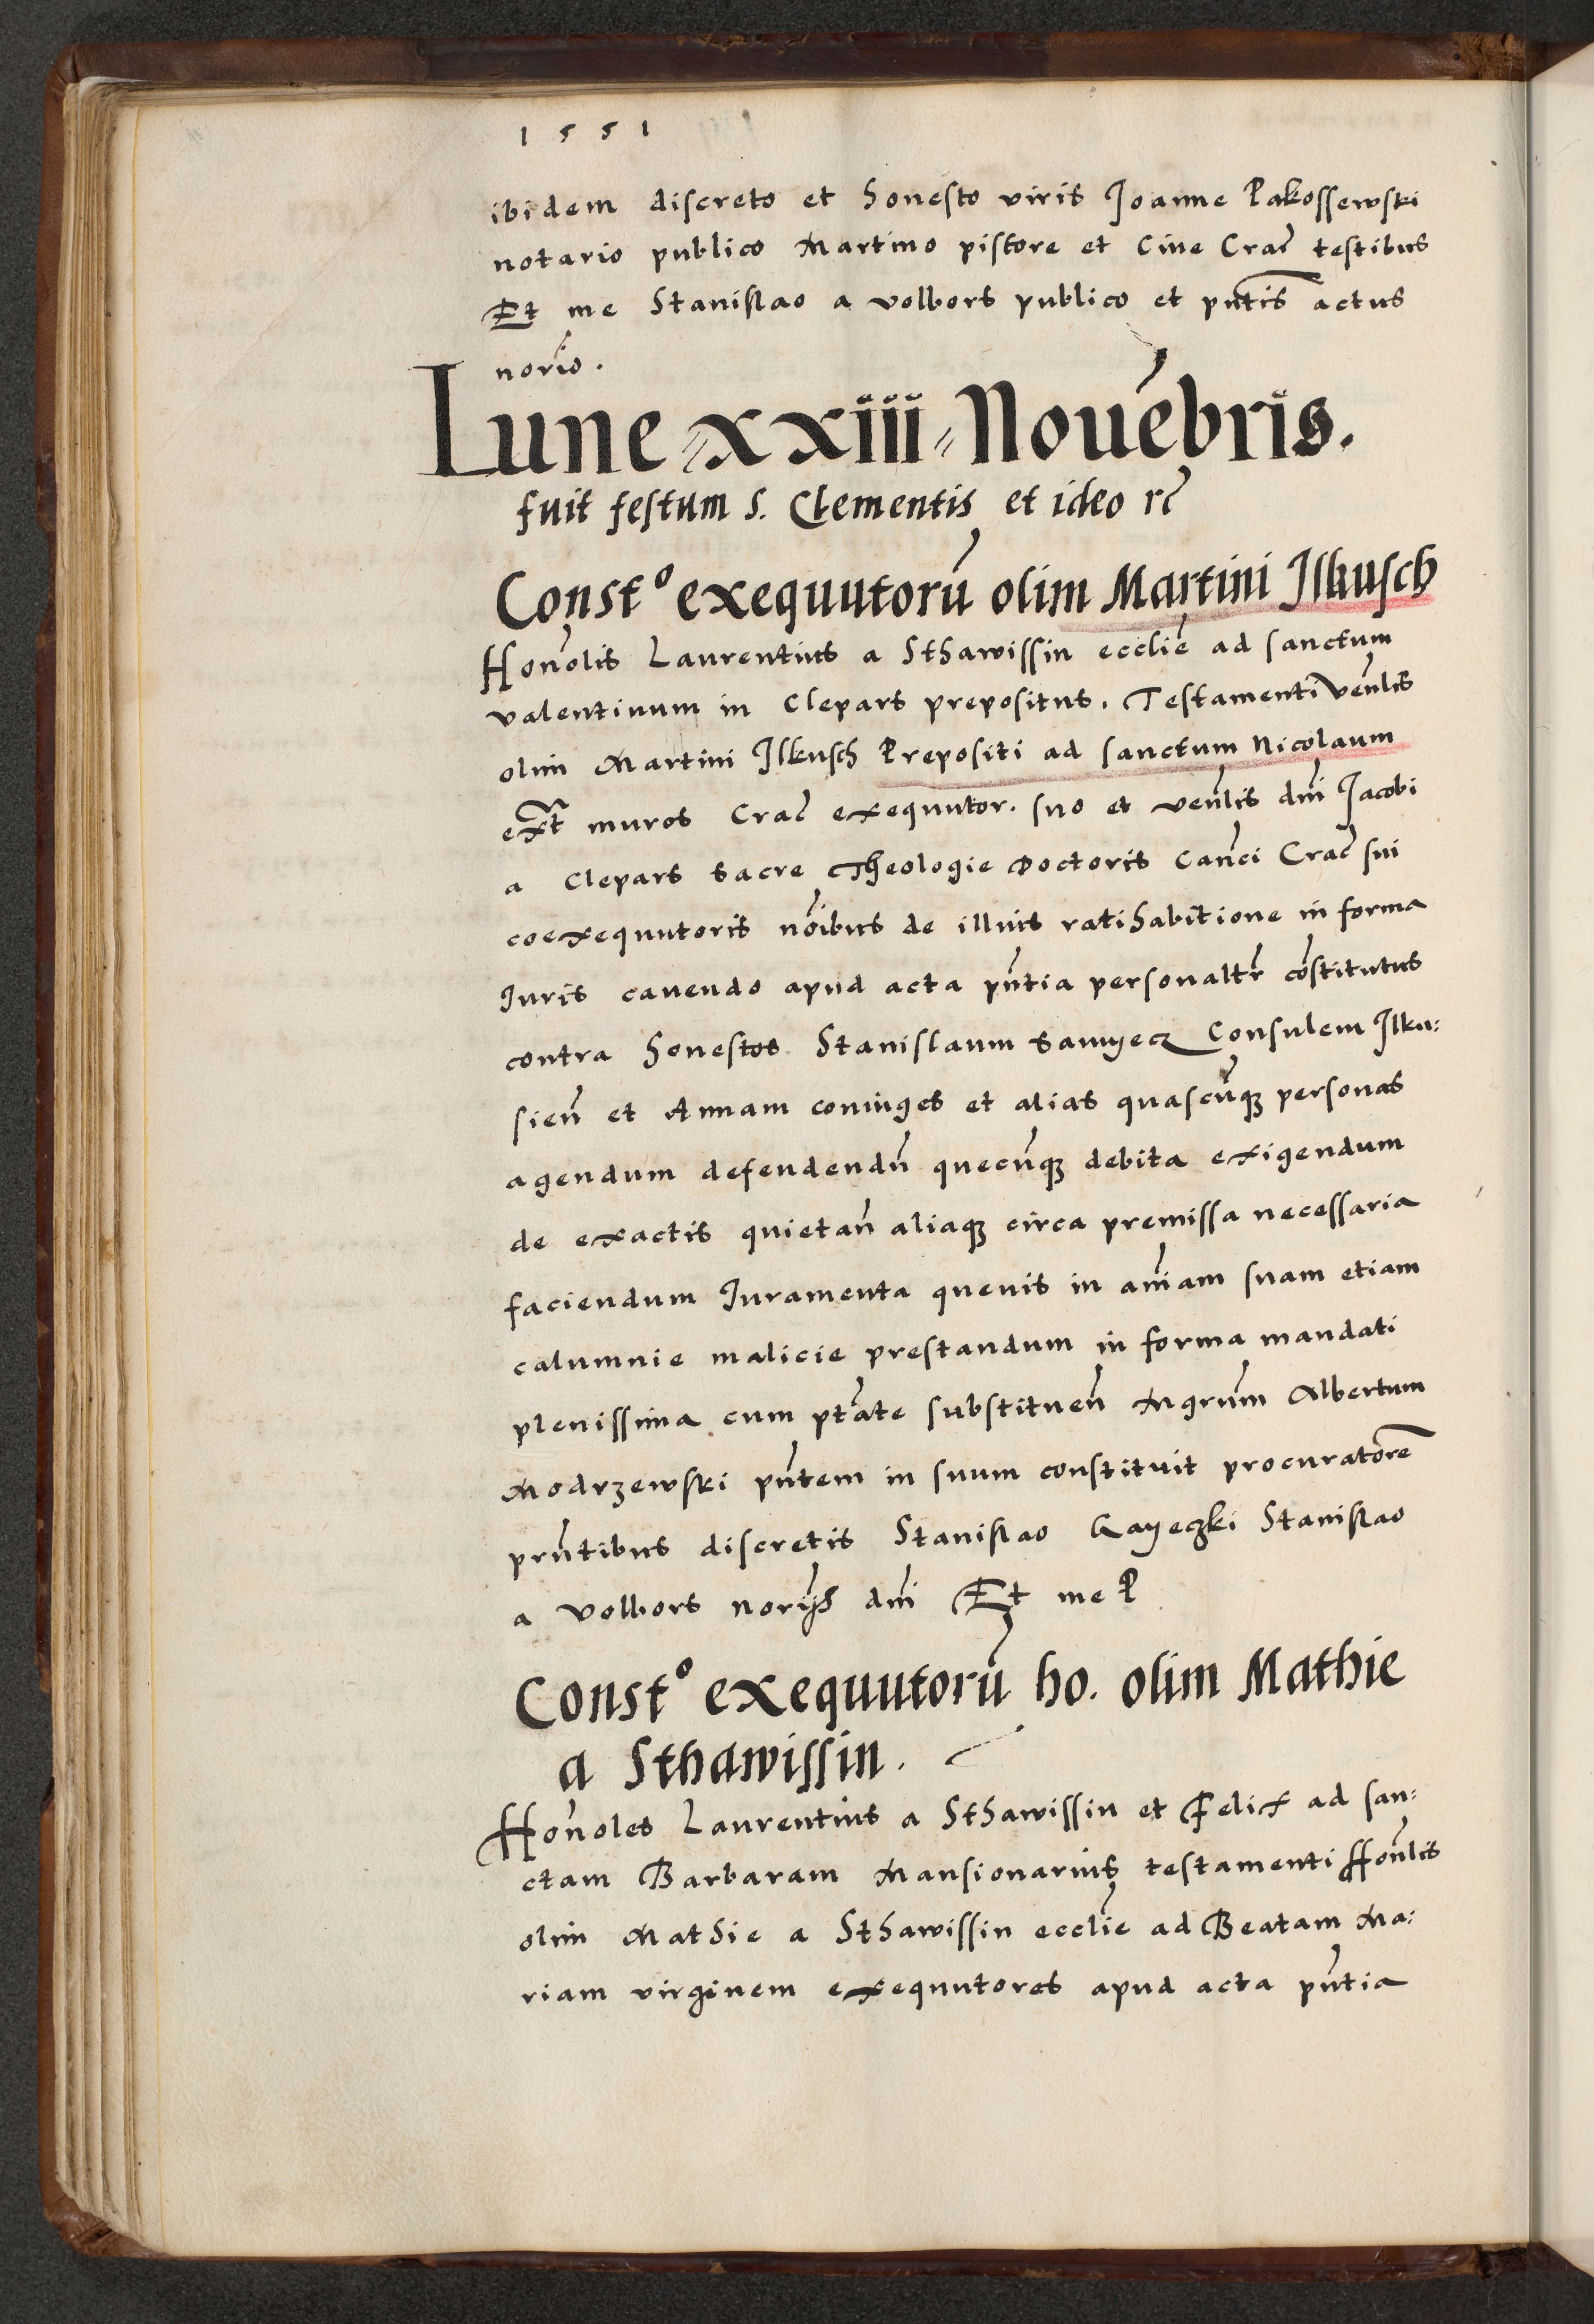 1551
ibidem discreto et honesto viris Joanne Pakossewski
notario publico Martino pistore et Cive Crac̄ testibus
Et me Stanislao a volbors publico et pn̄tis actus
nōrio.
Lune xxiii Nouēbris.
fuit festum s. Clementis et ideo rc̄
Constᵒ exequutorū olim Martini Ilkusch
Hono̅lis Laurentius a Sthawissin eccliē ad sanctum
valentinum in Clepars prepositus. Testamenti ven̄lis
olim Martini Ilkusch Prepositi ad sanctum Nicolaum
ext̄ muros Crac̄ exequutor. suo et ven̄lis dn̄i Jacobi
a Clepars sacre Theologie Doctoris Canc̄i Crac̄ sui
coexequutoris nōibus de illius ratihabitione in forma
Juris cauendo apud acta pn̄tia personaltr̄ cōstitutus
contra honestos Stanislaum Samyecz Consulem Ilku:
sien̄ et Annam coniuges et alias quascūqȝ personas
agendum defendendū quecūqȝ debita exigendum
de exactis quietan̄ aliaqȝ circa premissa necessaria
faciendum Juramenta queuis in an̄iam suam etiam
calumnie malicie prestandum in forma mandati
plenissima cum pt̄ate substituen̄ Mgr̄um Albertum
Modrzewski pn̄tem in suum constituit procuratorē
prn̄tibus discretis Stanislao Gayeczki Stanislao
a Volbors norijs dn̄i Et me P
Constᵒ exequutorū ho. olim Mathie
a Sthawissin.
Hono̅les Laurentius a Sthawissin et Felix ad san:
ctam Barbaram Mansionarius testamenti Hon̄lis
olim Mathie a Sthawissin eccliē ad Beatam Ma:
riam virginem exequutores apud acta pn̄tia